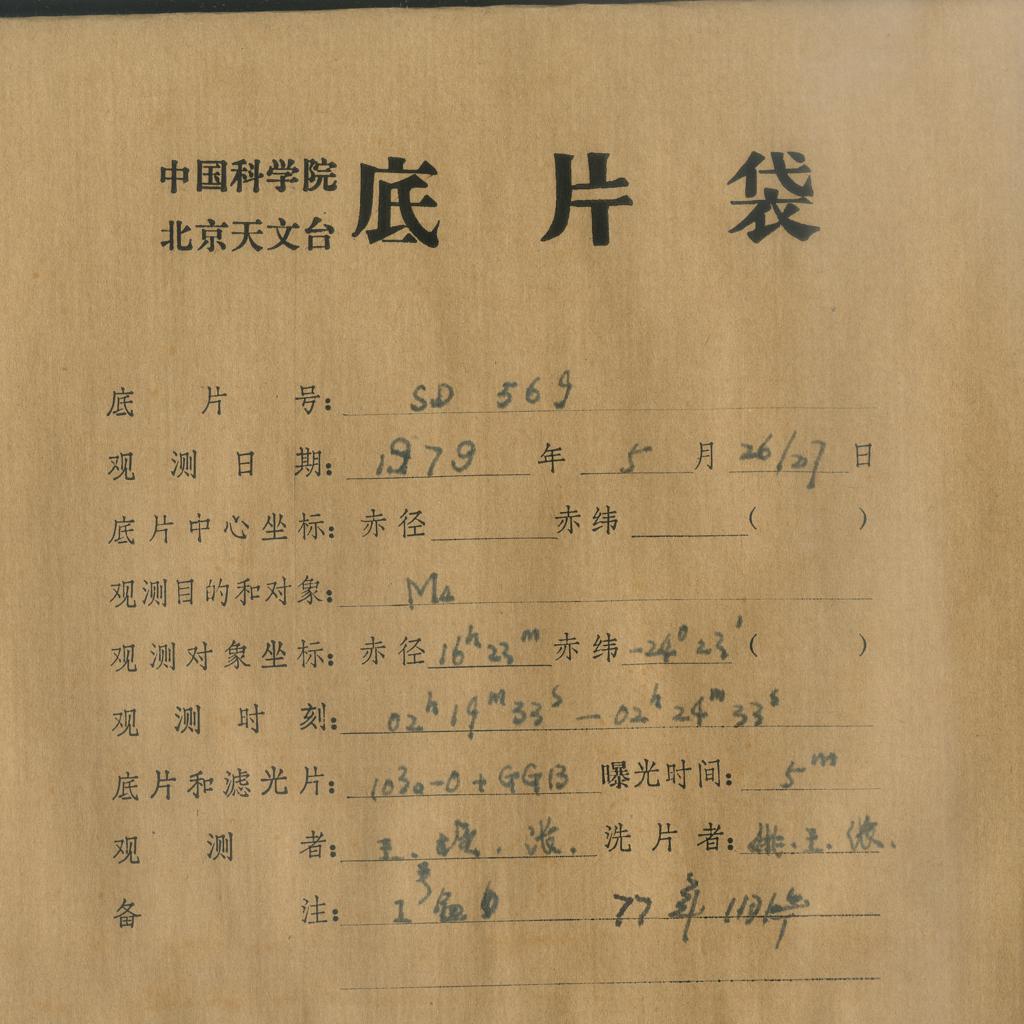 中国科学院
北京天文台
底片袋
底片号: SD 569
观测日期: 1979 年 5 月 26/27 日
底片中心坐标: 赤径 赤纬 ( )
观测目的和对象: M4
观测对象坐标: 赤径 16h 23m 赤纬 -24° 23′ ( )
观测时刻: 02h 19m 33s — 02h 24m 33s
底片和滤光片: 103a-O + GG13 曝光时间: 5m
观测者: 王. 洗片者: 王.
备注: 1号 77年